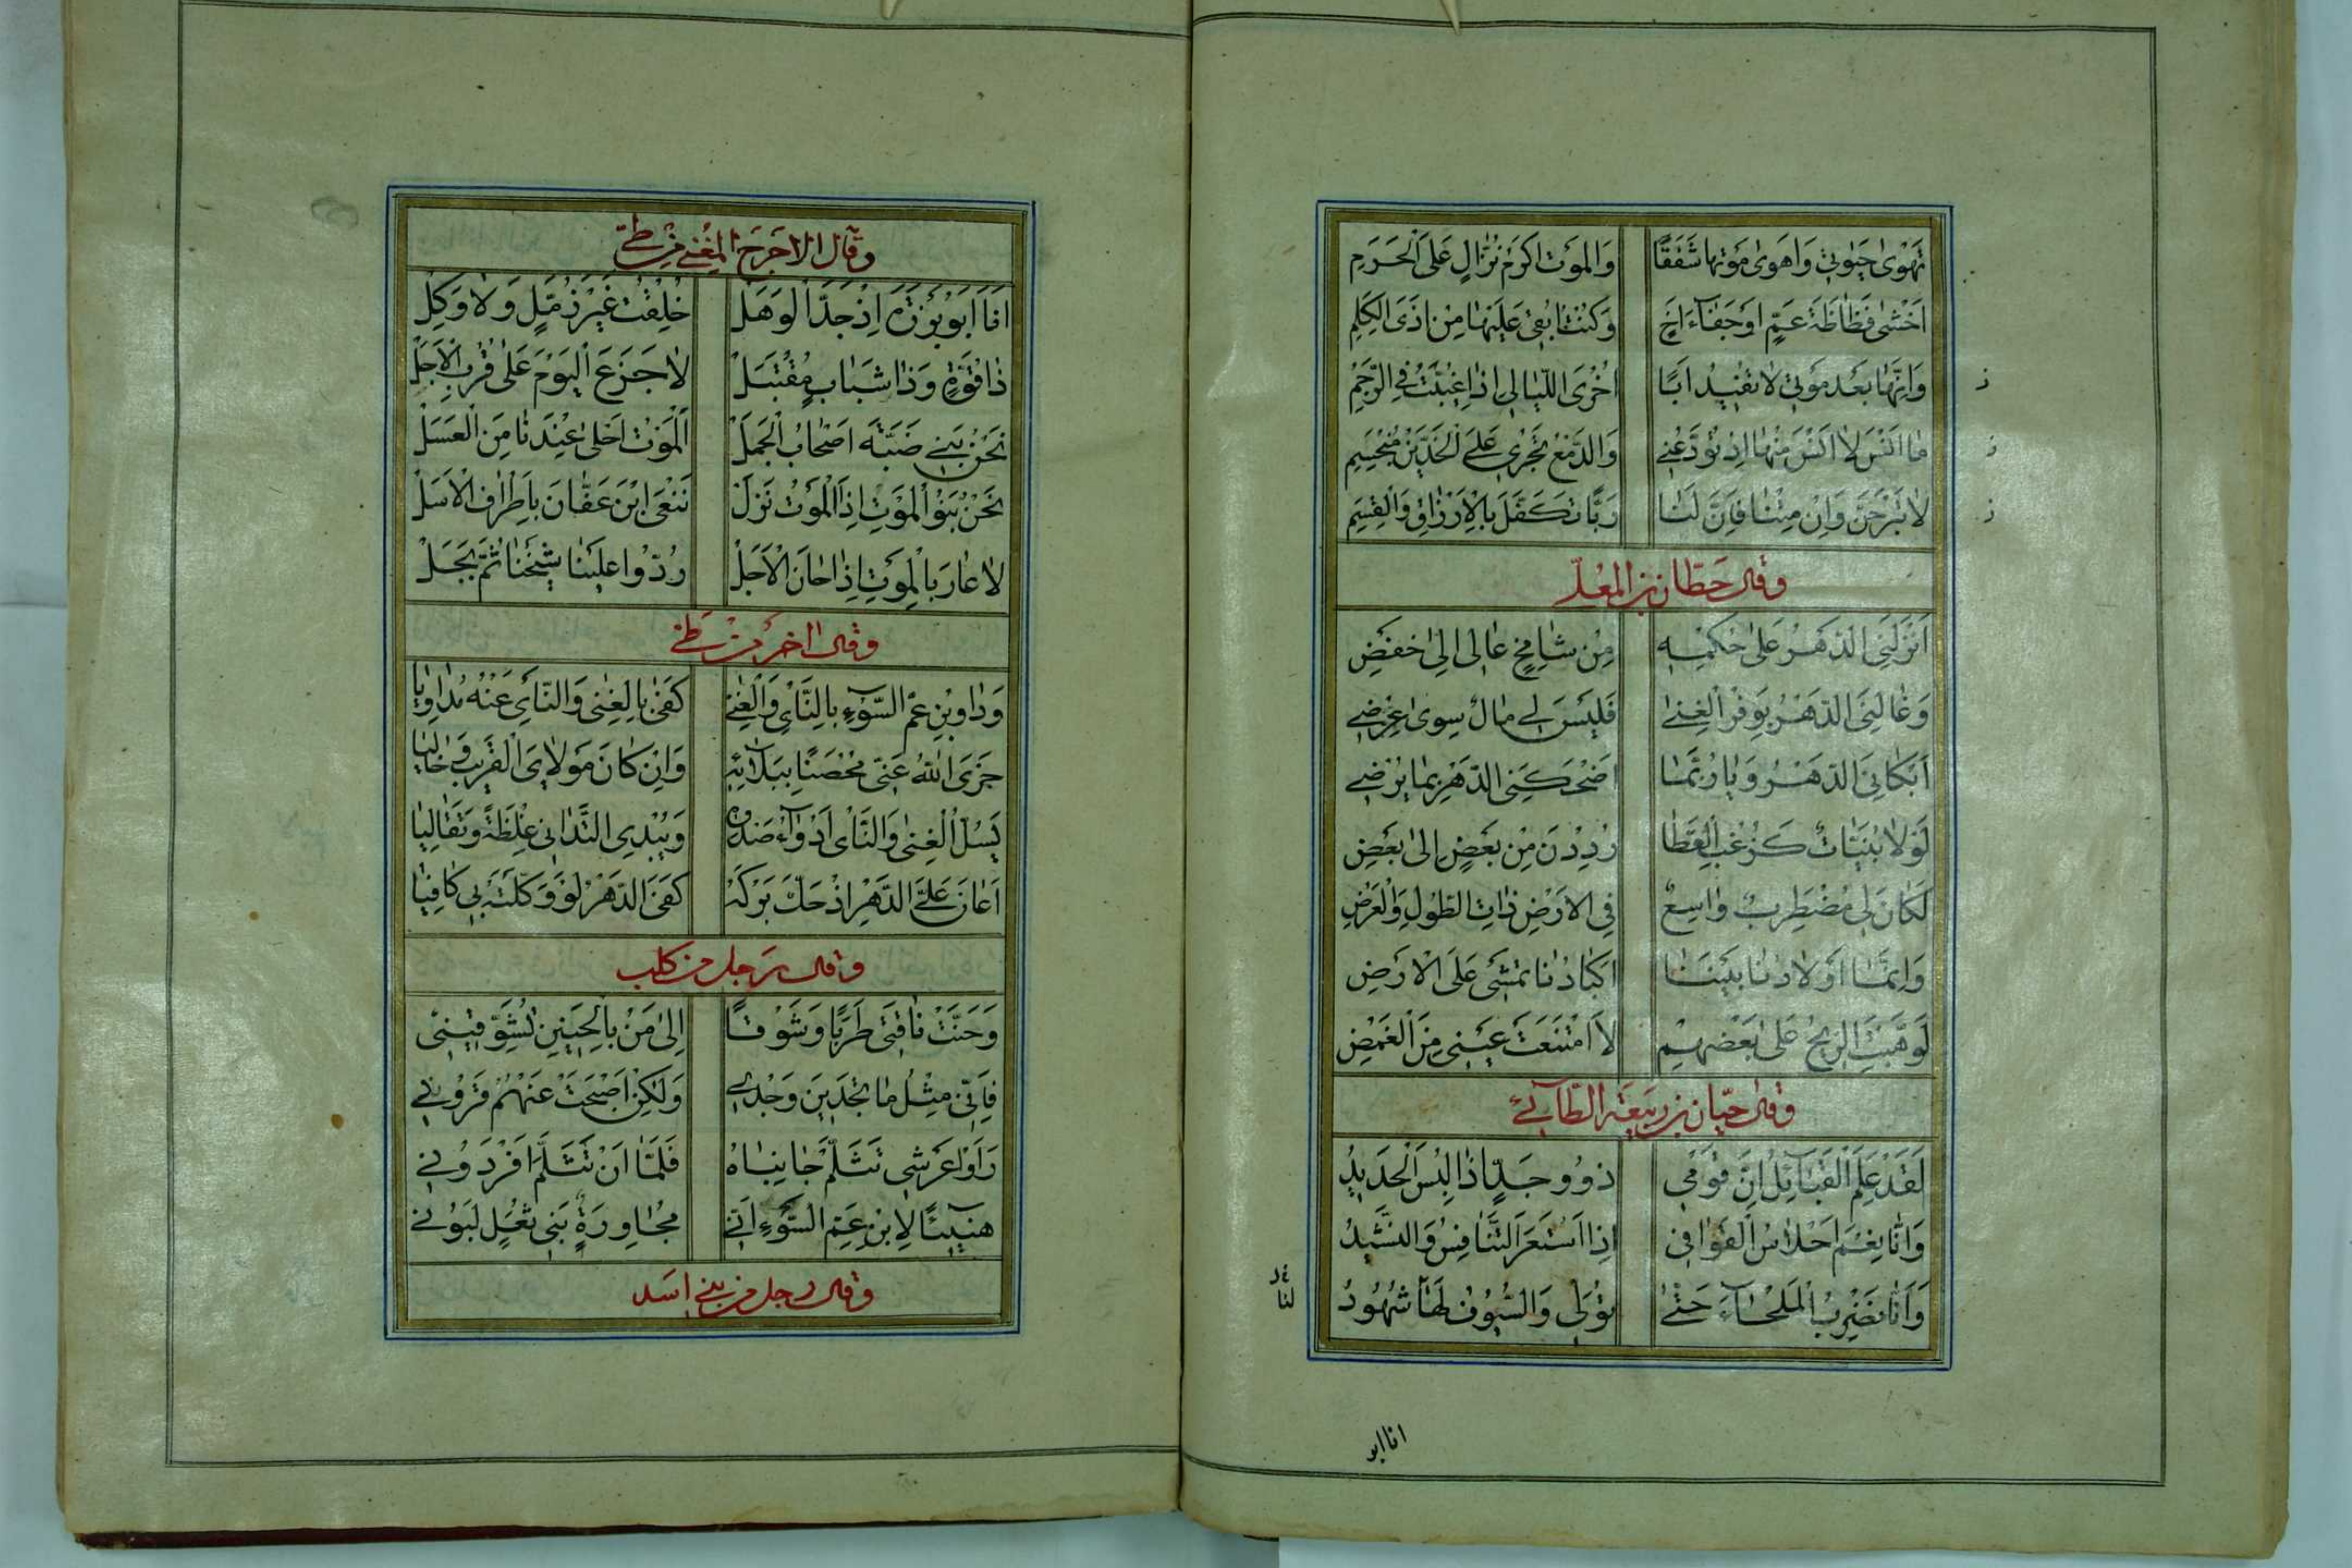 تَهْوىٰ حَيٰوتِي وَاَهوىٰ مَوْتَها شَفَقًا وَالمَوْت اَكرَمُ نُزّالٍ عَلَى الْحَرَمِ
اَخْشىٰ فَظَاظَةَ عَمٍّ اَوجَفَآءَ اَخٍ وَكُنْتُ اُبْقِي عَلَيْهَا مِن اَذَى الكَلِمِ
ز وَاِنَّهَا بَعْدَ مَوْتِي لَا تفيد اَبًا اُخْرَى اللّيَالِي اِذَا غُيِّبَتْ فِي الرَّجَمِ
ز مَا اَنْسَ لَا اَنْسَ مِنْهَا اِذ تُوَدِّعُنِي وَالدَّمْعُ يَجْرِي عَلَى الْخَدَّيْنِ مُنْجِسِمِ
ز لَا تَبْرَحَنَّ وَاِنْ مِتْنَا فَاِنَّ لَنَا رَبًّا تَكَفَّلَ بِالْاَرْزَاقِ وَالْقِسَمِ
وقال حَطّان بن المُعَلّى
اَنْزَلَنِي الدَهْرُ عَلىٰ حُكْمِهِ مِن شَامِخٍ عَالِى اِلىٰ خَفْضِ
وَغَالَنِي الدَهْرُ بِوَفْرِ الْغِنىٰ فَلَيْسَ لِي مَالٌ سِوىٰ عِرْضِي
اَبْكَانِيَ الدَهْرُ وَيَا رُبَّمَا اَضْحَكَنِي الدَهْرُ بِمَا يُرْضِي
لَوْلَا بُنَيّاتٌ كَزُغْبِ الْقَطَا رُدِدْنَ مِنْ بَعْضٍ اِلىٰ بَعْضِ
لَكَانَ لِي مُضْطَرِبٌ وَاسِعٌ فِي الْاَرْضِ ذَاتِ الطُّولِ وَالْعَرْضِ
وَاِنَّمَا اَوْلَادُنَا بَيْنَنَا اَكْبَادُنَا تَمْشِي عَلَى الْاَرْضِ
لَوْ هَبَّتِ الرِيْحُ عَلىٰ بَعْضِهِمْ لَاامْتَنَعَتْ عَيْنِي مِنَ الْغَمْضِ
وقال حيّان بن ربيعة الطّآئي
لَقَدْ عَلِمَ الْقَبَآئِلُ اِنَّ قَوْمِي ذَوُو جَدٍّ اِذَا لُبِسَ الْحَدِيدُ
وَاَنَّا نِعْمَ اَحْلَاسُ الْقَوَافِي اِذَا اسْتَعَرَ التَّنَافُسُ وَالنَّشِيدُ
وَاَنَّا نَضْرِبُ الْمَلْحَآءَ حَتّىٰ تُوَلِّي وَالسُّيُوفُ لَهَا شُهُودُ
لنا
انا ابو
وقال الاجرح المغني من طي
اَنَا اَبُو بَرْزَةَ اِذْ جَدَّ الْوَهَلْ خُلِقْتُ غَيْرَ زُمَّلٍ وَلَا وَكِلْ
ذَا قُوَّةٍ وَذَا شَبَابٍ مُقْتَبَلْ لَا جَزَعَ الْيَوْمَ عَلىٰ قُرْبِ الْاَجَلْ
نَحْنُ بَنِي ضَبَّةَ اَصْحَابُ الْجَمَلْ اَلْمَوْتُ اَحْلىٰ عِنْدَنَا مِنَ الْعَسَلْ
نَحْنُ بَنُو الْمَوْتِ اِذَا الْمَوْتُ نَزَلْ نَنْعَى ابْنَ عَفّانَ بِاَطْرَافِ الْاَسَلْ
لَا عَارَ بِالْمَوْتِ اِذَا حَانَ الْاَجَلْ رُدُّوا عَلَيْنَا شَيْخَنَا ثُمَّ بَجَلْ
وقال اخر من طي
وَدَاوِ بْنِ عَمّ السَّوْءِ بِالنَّأْيِ وَالْغِنىٰ كَفىٰ بِالْغِنى وَالنَّأْيِ عَنْهُ مُدَاوِيَا
جَزَى اللهُ عَنّي مُحْصَنًا بِبَلَائِهِ وَاِنْ كَانَ مَوْلَايَ الْقَرِيبَ وَخَالِيَا
يَسُلُّ الْغِنىٰ وَالنَّأْيُ اَدْوَآءَ صَدْرِهِ وَيُبْدِي التَّدَانِي غِلْظَةً وَتَقَالِيَا
اَعَانَ عَلَيَّ الدَّهْرَ اِذْ حَلَّ بَرْكَهُ كَفَى الدَّهْرُ لَوْ وَكَّلْتَهُ بِي كَافِيَا
وقال رجل من كلب
وَحَنَّتْ نَاقَتِي طَرَبًا وَشَوْقًا اِلىٰ مَنْ بِالْحَنِينِ تُشَوِّقِينِي
فَاِنّي مِثْلُ مَا تَجِدِينَ وَجْدِي وَلٰكِنْ اَصْحَبَتْ عَنْهُمْ قَرُونِي
رَاَوْا عَرْشِي تَثَلَّمَ جَانِبَاهُ فَلَمَّا اَنْ تَثَلَّمَ اَفْرَدُونِي
هَنِيئًا لِابْنِ عَمِّ السَّوْءِ اَنّي مُجَاوِرَةٌ بَنِي ثُعَلٍ لَبُونِي
وقال رجل من بني اسد